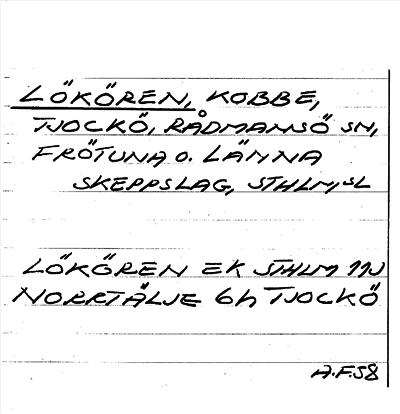 LÖKÖREN, KOBBE,
TJOCKÖ, RÅDMANSÖ SN,
FRÖTUNA O. LÄNNA
SKEPPSLAG, STHLMS L
LÖKÖREN EK STHLM 11J
NORRTÄLJE 6h TJOCKÖ
A.F.58